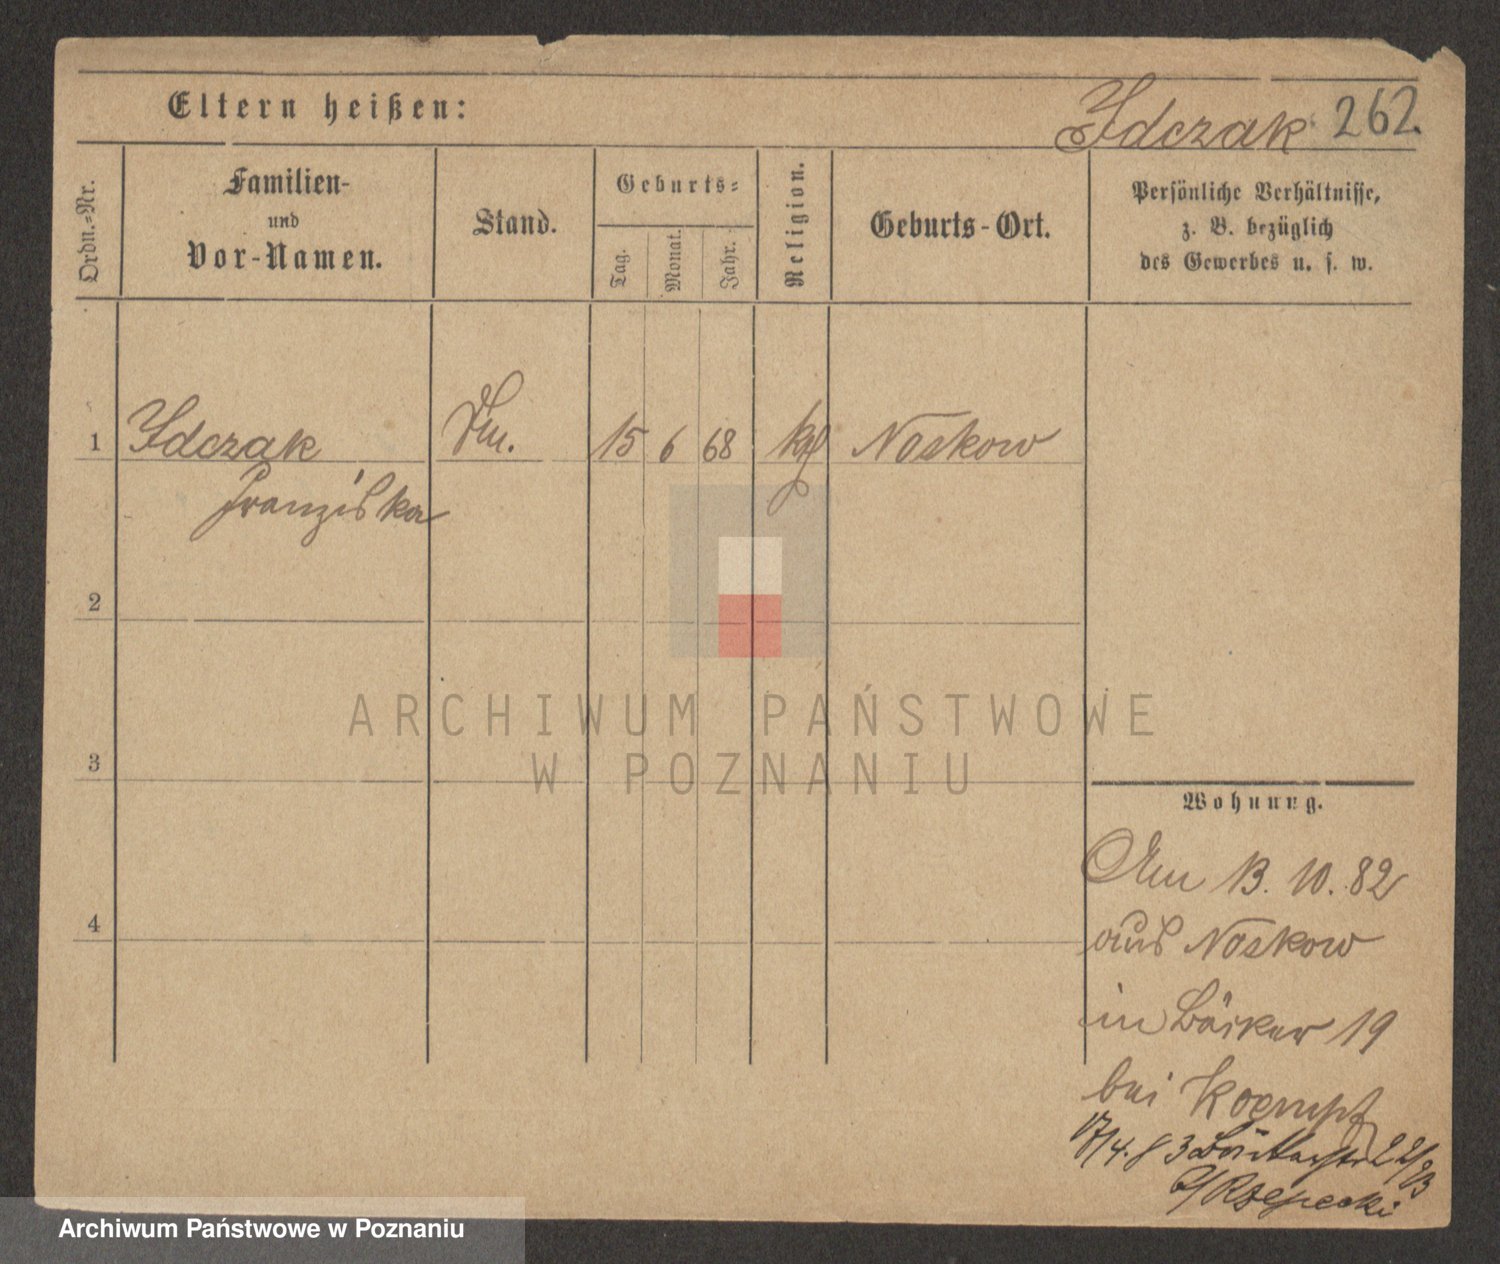 Eltern heißen:
Idczak 262.
Ordn.-Nr.
Familien-
und
Vor-Namen.
Stand.
Geburts-
Tag.
Monat.
Jahr.
Religion.
Geburts-Ort.
Persönliche Verhältnisse,
z. B. bezüglich
des Gewerbes u. s. w.
1 Idczak 15 6 68 kgl Noskow
Franziska
2
3
4
ARCHIWUM PAŃSTWOWE
W POZNANIU
Wohnung.
Am 13. 10. 82
aus Noskow
in Bäcker 19
bei Koempf
17/4. 83
Rzepecki
Archiwum Państwowe w Poznaniu